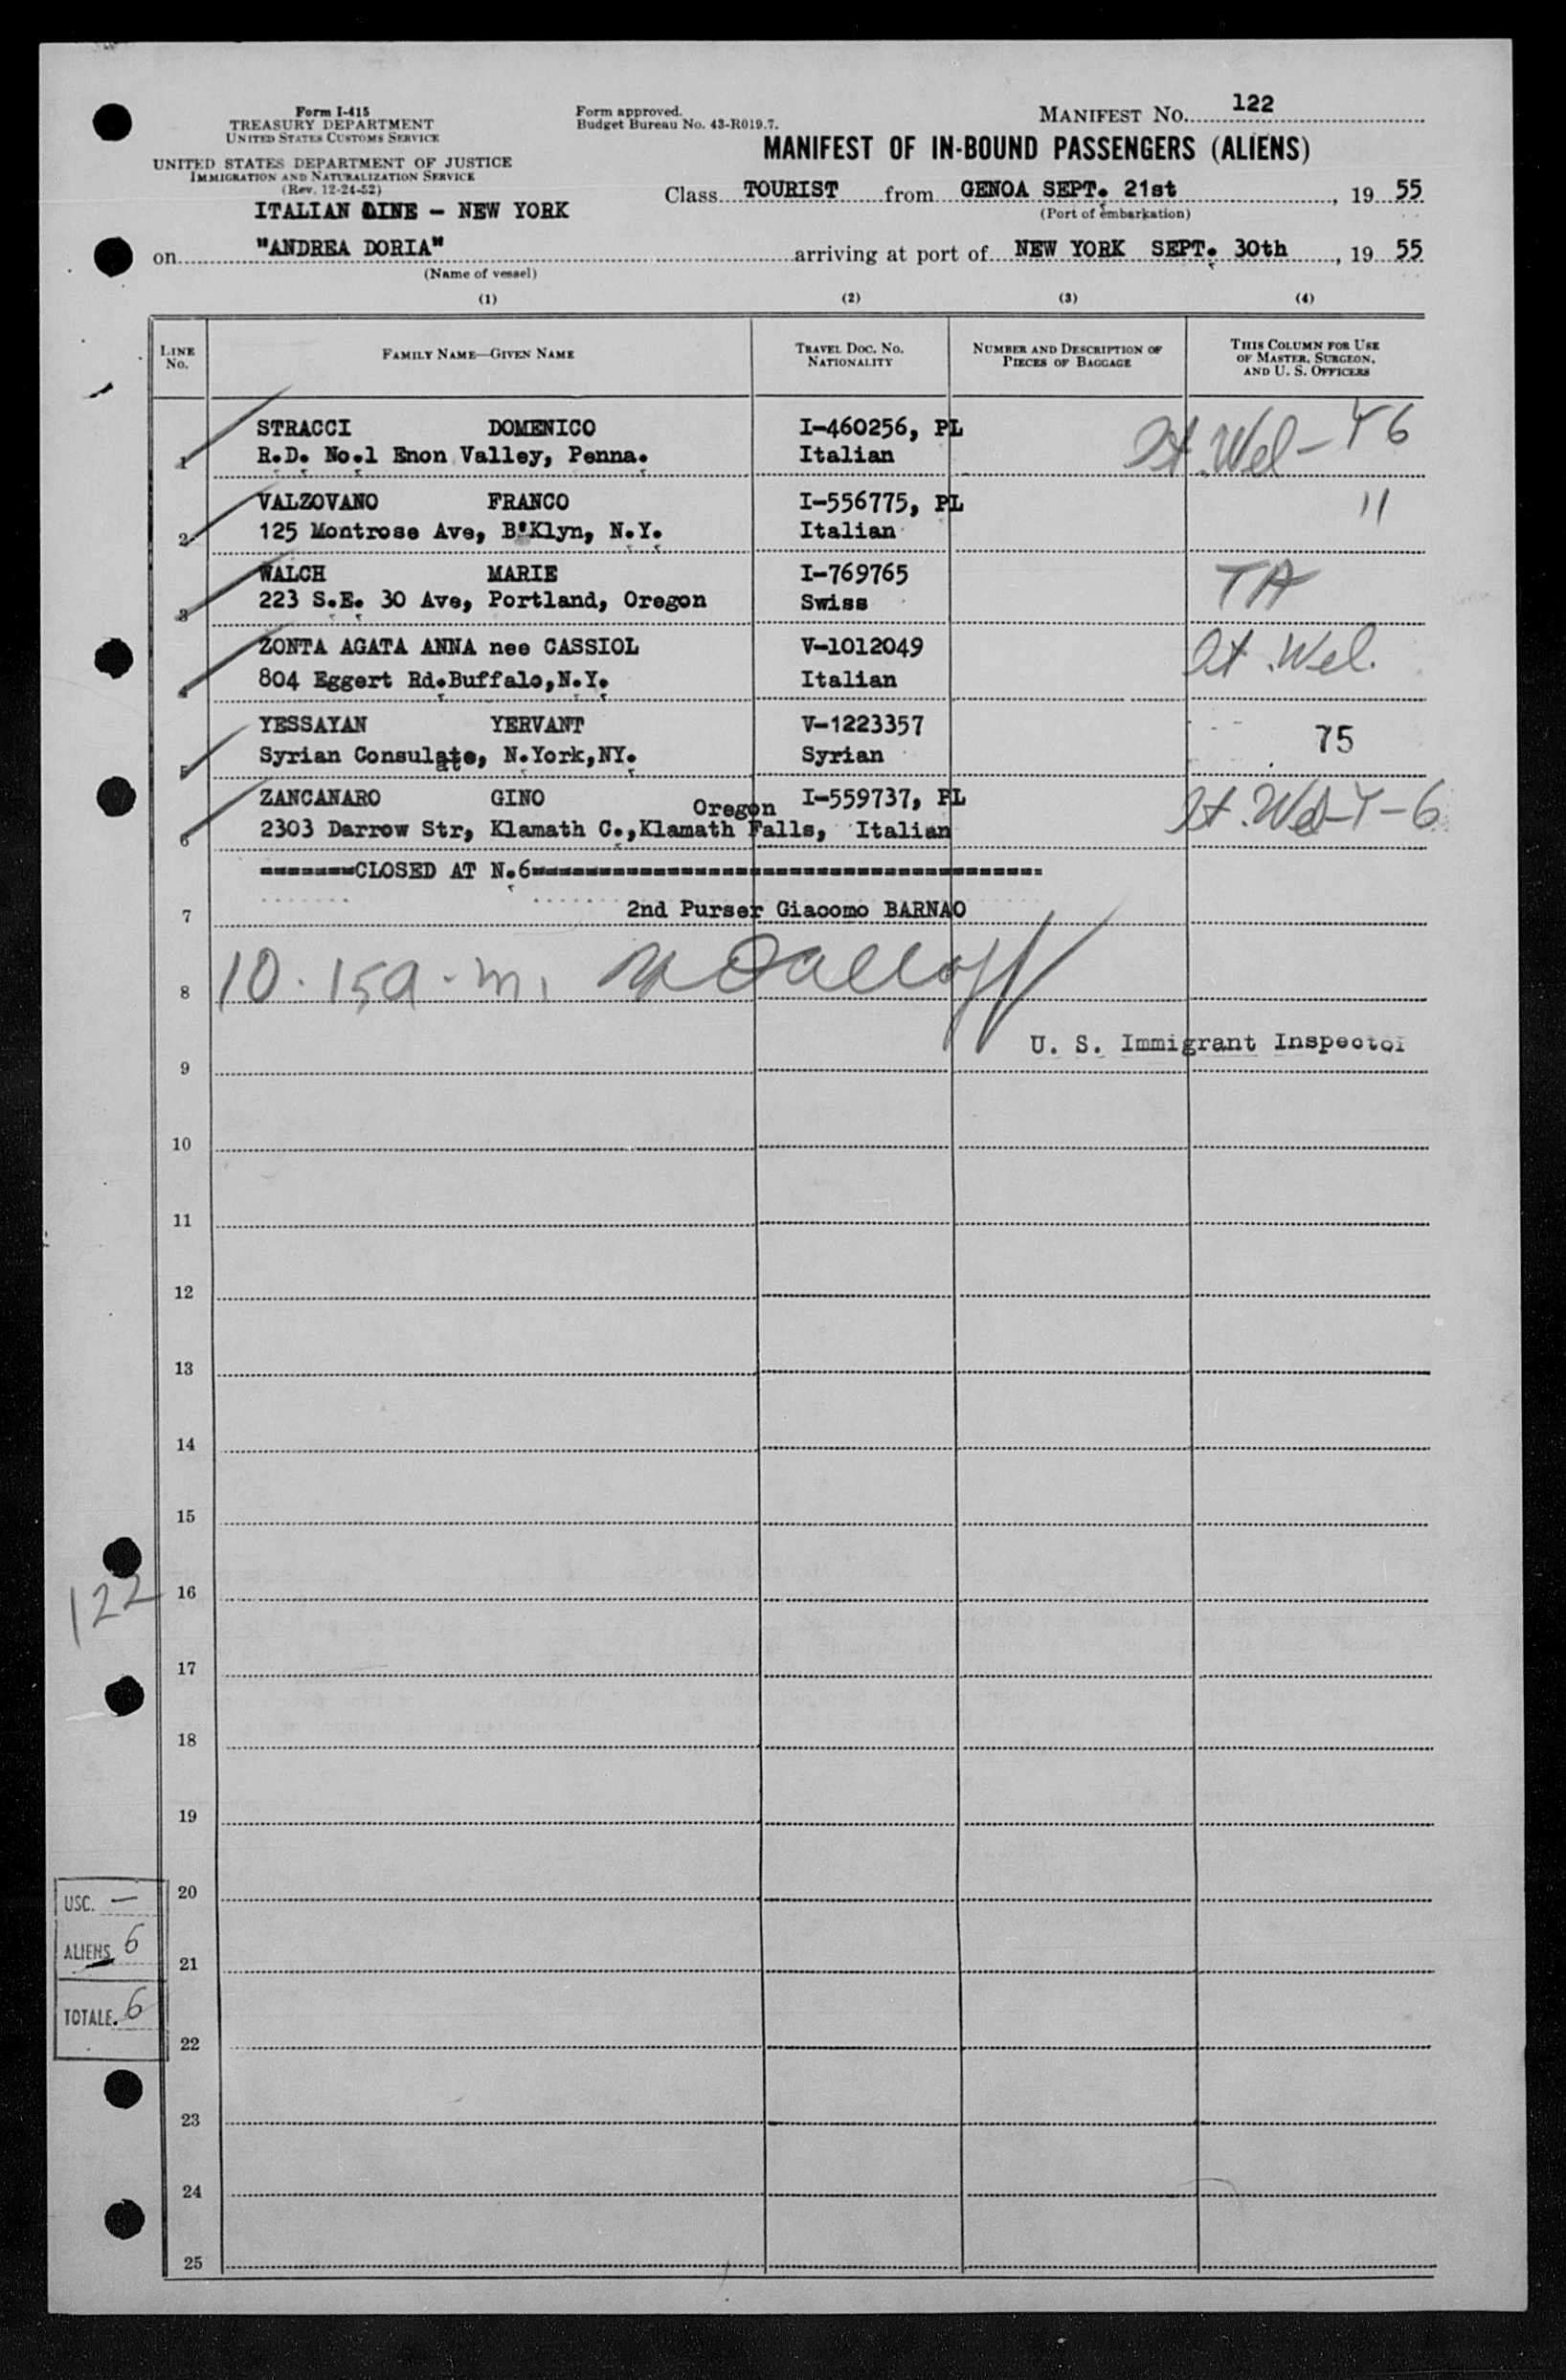 Form I-415
TREASURY DEPARTMENT
UNITED STATES CUSTOMS SERVICE
UNITED STATES DEPARTMENT OF JUSTICE
IMMIGRATION AND NATURALIZATION SERVICE
(Rev. 12-24-52)
Form approved.
Budget Bureau No. 43-R019.7.
MANIFEST No. 122
MANIFEST OF IN-BOUND PASSENGERS (ALIENS)
Class TOURIST from GENOA SEPT. 21st, 19 55
(Port of embarkation)
ITALIAN LINE - NEW YORK
on "ANDREA DORIA" arriving at port of NEW YORK SEPT. 30th, 19 55
(Name of vessel)
(1) (2) (3) (4)
LINE No. FAMILY NAME—GIVEN NAME TRAVEL DOC. No. NATIONALITY NUMBER AND DESCRIPTION OF PIECES OF BAGGAGE THIS COLUMN FOR USE OF MASTER, SURGEON, AND U. S. OFFICERS
STRACCI DOMENICO I-460256, PL
1 R.D. No.1 Enon Valley, Penna. Italian
VALZOVANO FRANCO I-556775, PL 11
2 125 Montrose Ave, B'Klyn, N.Y. Italian
WALCH MARIE I-769765 TA
3 223 S.E. 30 Ave, Portland, Oregon Swiss
ZONTA AGATA ANNA nee CASSIOL V-1012049
4 804 Eggert Rd.Buffalo,N.Y. Italian
YESSAYAN YERVANT V-1223357 75
5 Syrian Consulate, N.York,NY. Syrian
ZANCANARO GINO Oregon I-559737, PL
6 2303 Darrow Str, Klamath C.,Klamath Falls, Italian
=======CLOSED AT N.6=======
7 2nd Purser Giacomo BARNAO
8 10.15 a.m.
U. S. Immigrant Inspector
9
10
11
12
13
14
15
16
122
17
18
19
20
USC. —
ALIENS 6
21
TOTALE. 6
22
23
24
25